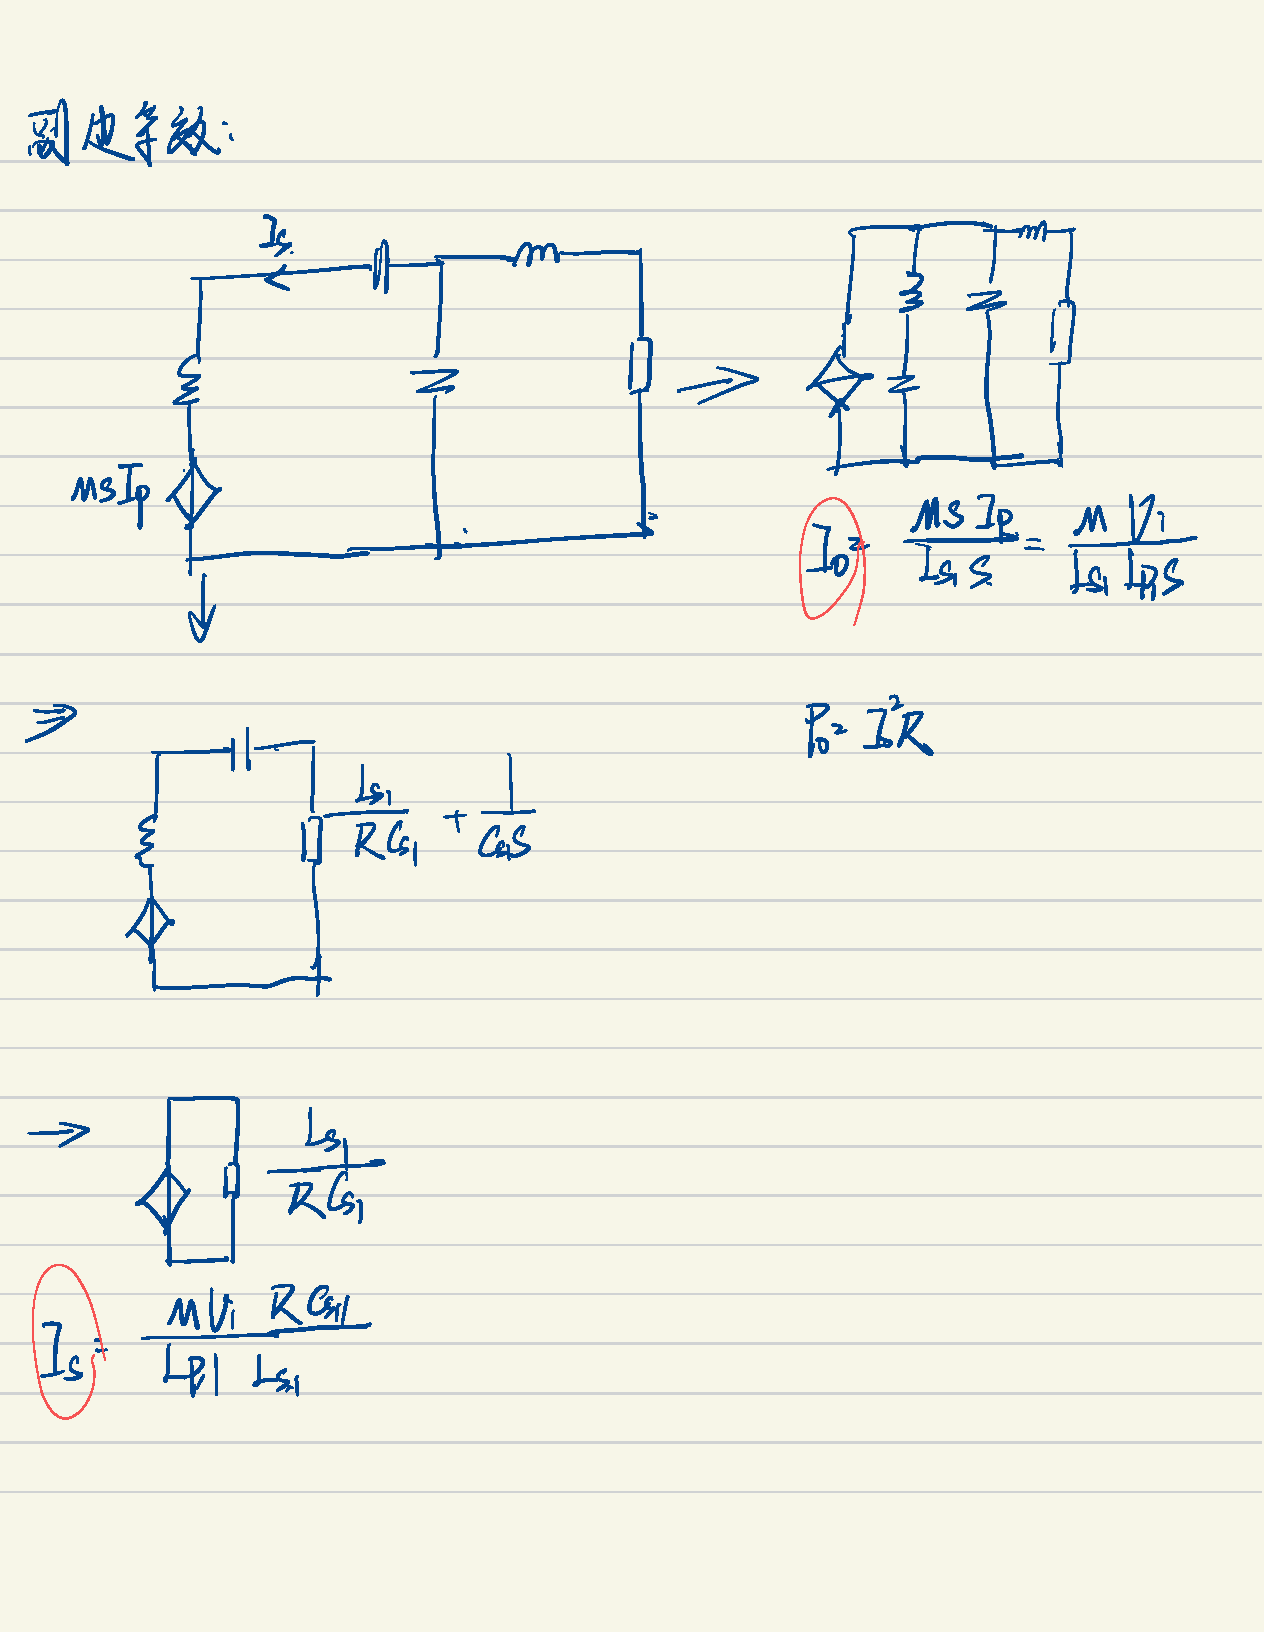 副边等效:
Is
MSIp
Io = MSIp / Ls1 S = M Vi / Ls1 Lp1 S
Po = Io²R
Ls1 / R Cs1 + 1 / Cs1 S
Ls1 / R Cs1
Is = M Ui R Cs1 / Lp1 Ls1